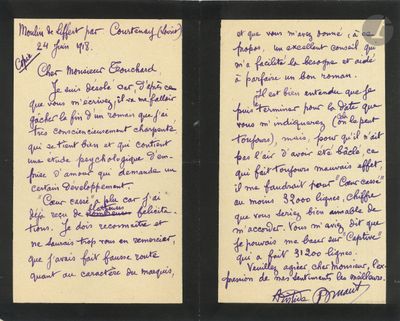 Moulin de Liffert par Courtenay (Loiret)
24 Juin 1918.
Copie
Cher Monsieur Touchard
Je suis désolé car, d'après ce
que vous m'écrivez, il va me falloir
gâcher la fin d'un roman que j'ai
très consciencieusement charpenté
qui se tient bien et qui contient
une étude psychologique d'em-
prise d'amour qui demande un
certain développement.
"Cœur cassé" a plu car j'ai
déjà reçu de flatteuses félicita
tions. Je dois reconnaître et
ne saurais trop vous en remercier,
que j'avais fait fausse route
quant au caractère du marquis,
et que vous m'avez donné, à ce
propos, un excellent conseil qui
m'a facilité la besogne et aidé
à parfaire un bon roman.
Il est bien entendu que je
puis terminer pour la date que
vous m'indiquerez (on le peut
toujours), mais, pour qu'il n'ait
pas l'air d'avoir été bâclé ce
qui fait toujours mauvais effet,
il me faudrait pour "Cœur cassé"
au moins 32000 lignes, chiffre
que vous seriez bien aimable de
m'accorder. Vous m'aviez dit que
je pouvais me baser sur "Captive"
qui a fait 31200 lignes.
Veuillez agréer cher Monsieur, l'ex-
pression de mes sentiments les meilleurs.
Aristide Bruant